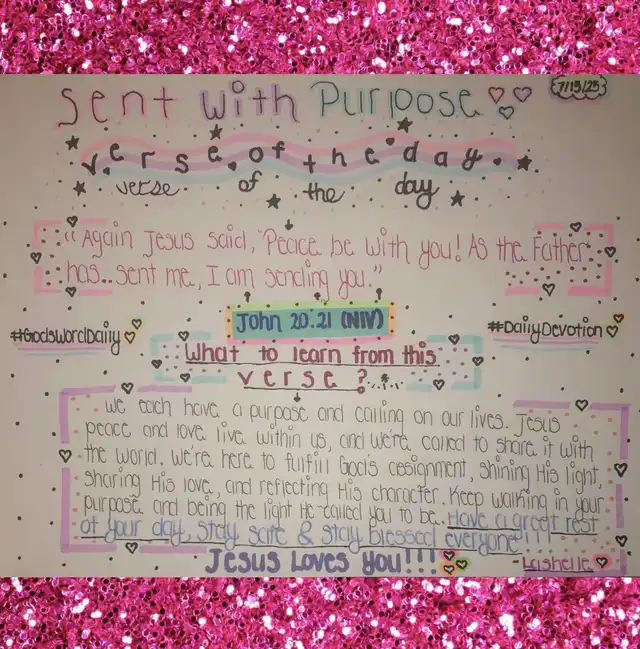 Sent with Purpose
7/15/25
verse of the day
verse of the day
"Again Jesus said, "Peace be with you! As the Father
has sent me, I am sending you."
John 20:21 (NIV)
#GodsWordDaily
#DailyDevotion
What to learn from this
verse?
We each have a purpose and calling on our lives. Jesus
peace and love live within us, and we're called to share it with
the world. We're here to fulfill God's assignment, shining His light,
sharing His love, and reflecting His character. Keep walking in your
purpose and being the light He called you to be. Have a great rest
of your day, stay safe & stay blessed everyone!
Jesus Loves You!!!
-Lashelle